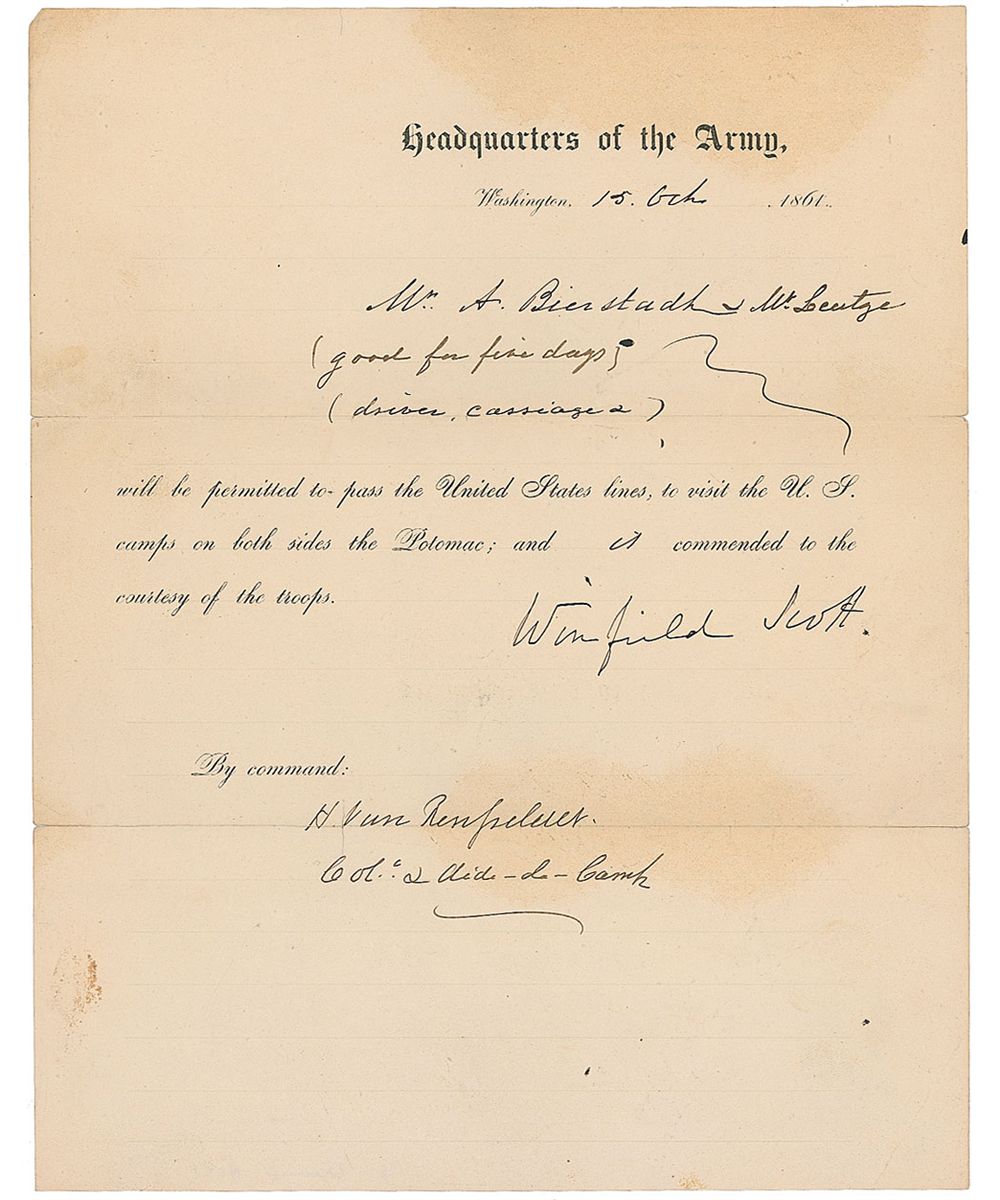 Headquarters of the Army,
Washington, 15. Oct. 1861.
Mr. A. Bierstadt & Mr. Leutze
(good for five days)
(driver, carriage & )
will be permitted to pass the United States lines, to visit the U. S.
camps on both sides the Potomac; and is commended to the
courtesy of the troops.
Winfield Scott.
By command:
H. Van Rensselaer.
Col. & Aide-de-Camp